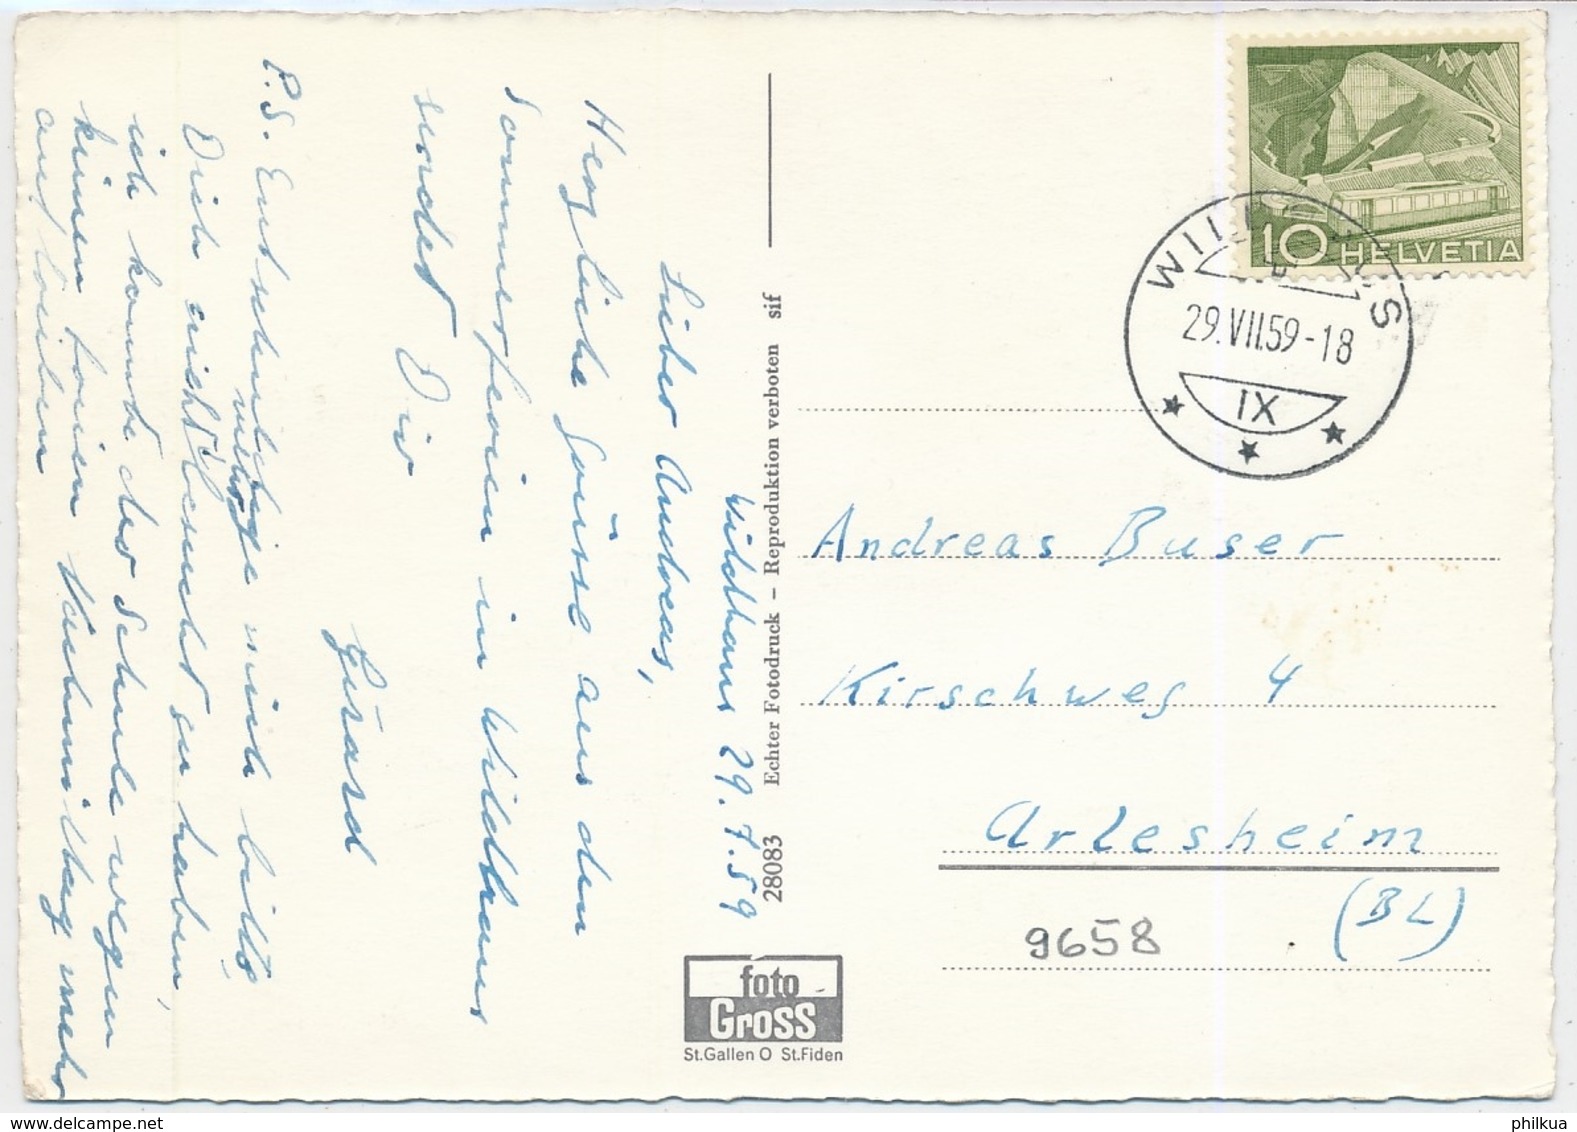 Wildhaus 29.7.59
Lieber Andreas,
Herzliche Grüsse aus den
Sommerferien in Wildhaus
sendet Dir
Gérard
P.S. Entschuldige mich bitte
Dich nicht vorher besucht zu haben,
ich konnte der Schule wegen
keinen freien Nachmittag mehr
auftreiben
28083 Echter Fotodruck – Reproduktion verboten sif
foto
Gross
St.Gallen O St.Fiden
10 HELVETIA
WILDHAUS
29.VII.59-18
IX
Andreas Buser
Kirschweg 4
Arlesheim
(BL)
9658
philkua